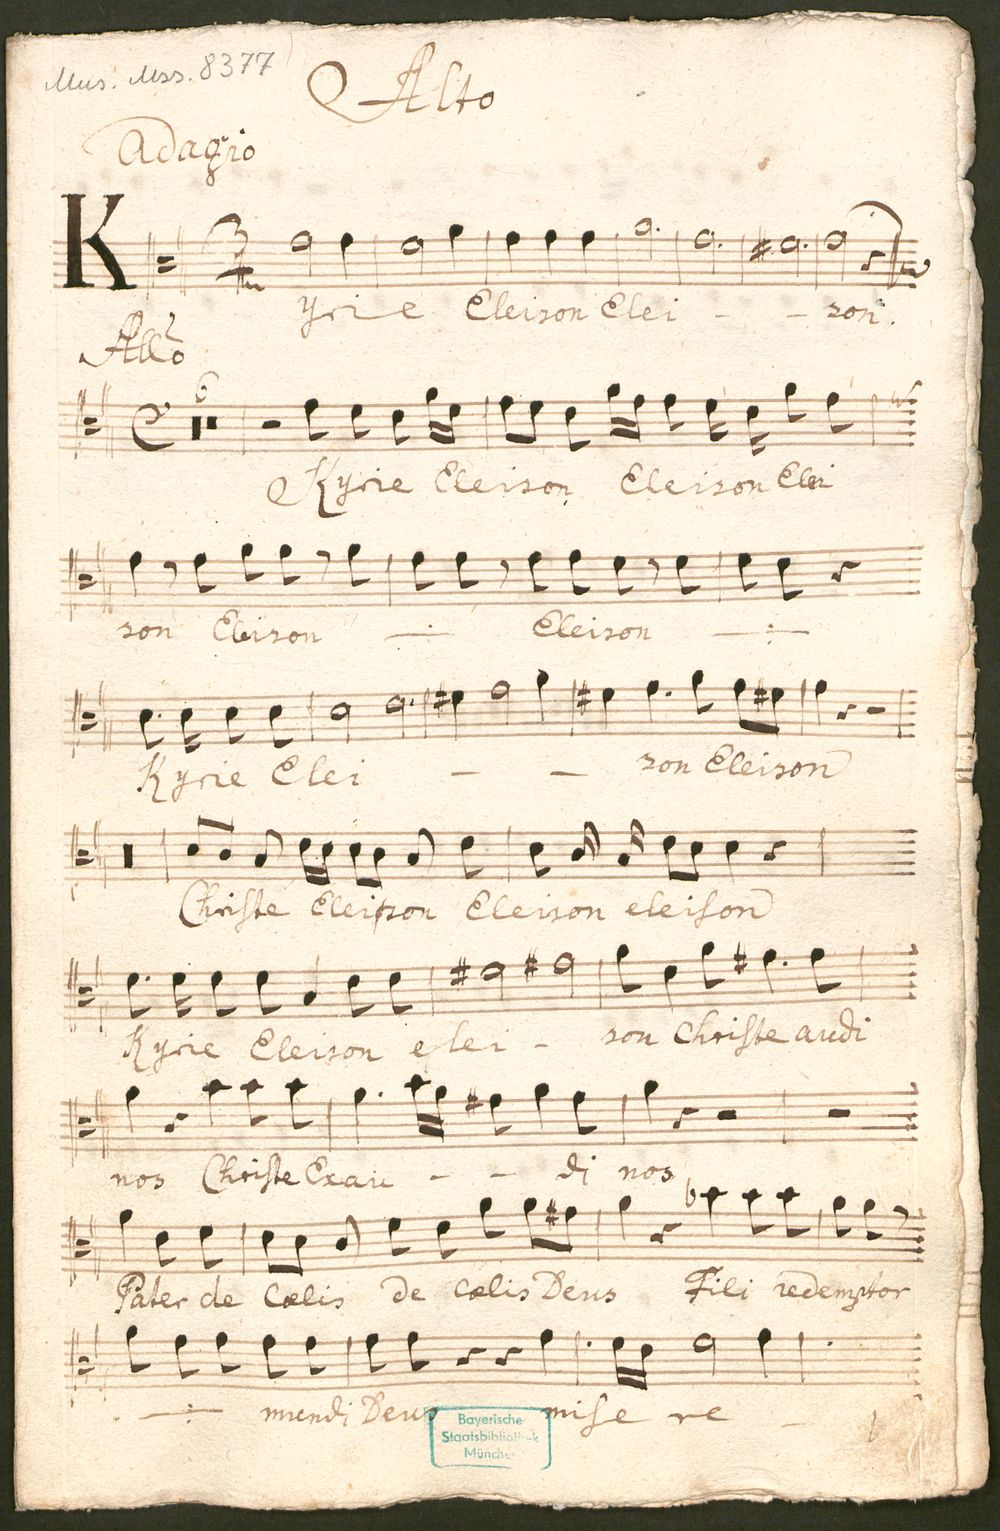 Mus. Mss. 8377
Alto
Adagio
3
Kyrie Eleison Elei - - son.
Allo
6
Kyrie Eleison Eleison Elei
son Eleison Eleison
Kyrie Elei - - son Eleison
Christe Eleison Eleison eleison
Kyrie Eleison elei - son Christe audi
nos Christe Exau - - di nos
Pater de Cælis de Cælis Deus Fili redemptor
mundi Deus mise re -
Bayerische
Staatsbibliothek
München